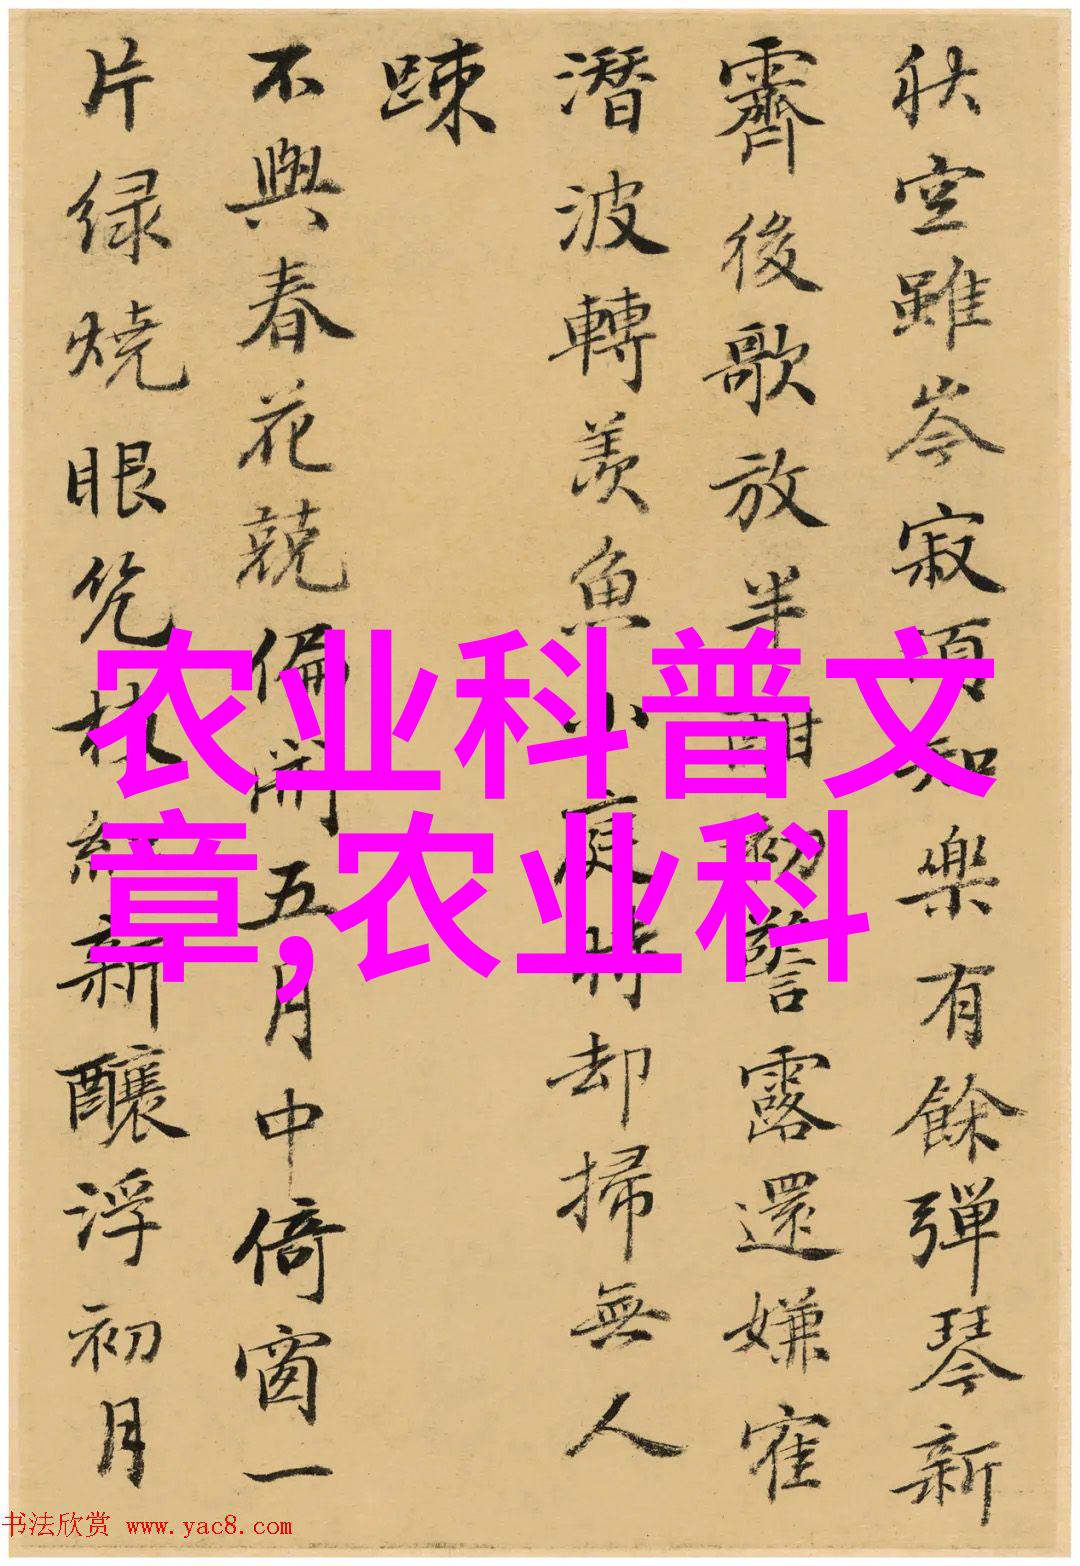 秋空雖岑寂須知樂有餘彈琴新
霽後歌放半酣初警露還嫌寉
潛波轉羨魚小庭時却掃無人
踈
不與春花競偏開五月中倚窗一
片绿燒眼枝紅新釀浮初月
农业科普文
章,农业科
书法欣赏 www.yac8.com